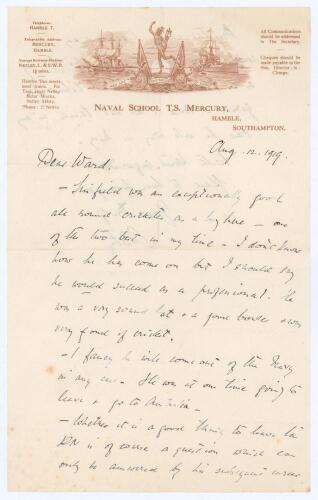 Telephone:
HAMBLE 7.
Telegraphic Address:
MERCURY,
HAMBLE.
NETLEY, L. & S.W.R.
1½ miles.
Hamble 'Bus meets
most trains. For
Taxi, 'phone Netley
Motor Works,
Netley Abbey.
'Phone: 27 Netley
All Communications
should be addressed
to The Secretary.
Cheques should be
made payable to the
Charge.
NAVAL SCHOOL T.S. MERCURY,
HAMBLE,
SOUTHAMPTON.
Aug. 12. 1919.
Dear Ward.
- Sinfield was an exceptionally good
all round cricketer as a boy here - one
of the two best in my time - I don't know
how he has come on but I should say
he would succeed as a professional. He
was a very sound bat & a good bowler & was
very fond of cricket.
- I fancy he will come out of the Navy
in any case - He was at one time going to
leave & go to America -
- Whether it is a good thing to leave the
RN is of course a question which can
only be answered by his subsequent career